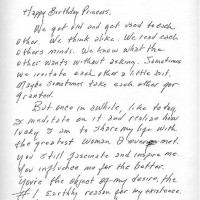 Happy Birthday Princess.
We get old and get used to each
other. We think alike. We read each
others minds. We know what the
other wants without asking. Sometimes
we irritate each other a little bit.
Maybe sometimes take each other for
granted.
But once in awhile, like today,
I meditate on it and realize how
lucky I am to share my life with
the greatest woman I ever met.
You still fascinate and inspire me.
You influence me for the better.
You're the object of my desire, the
#1 Earthly reason for my existence.